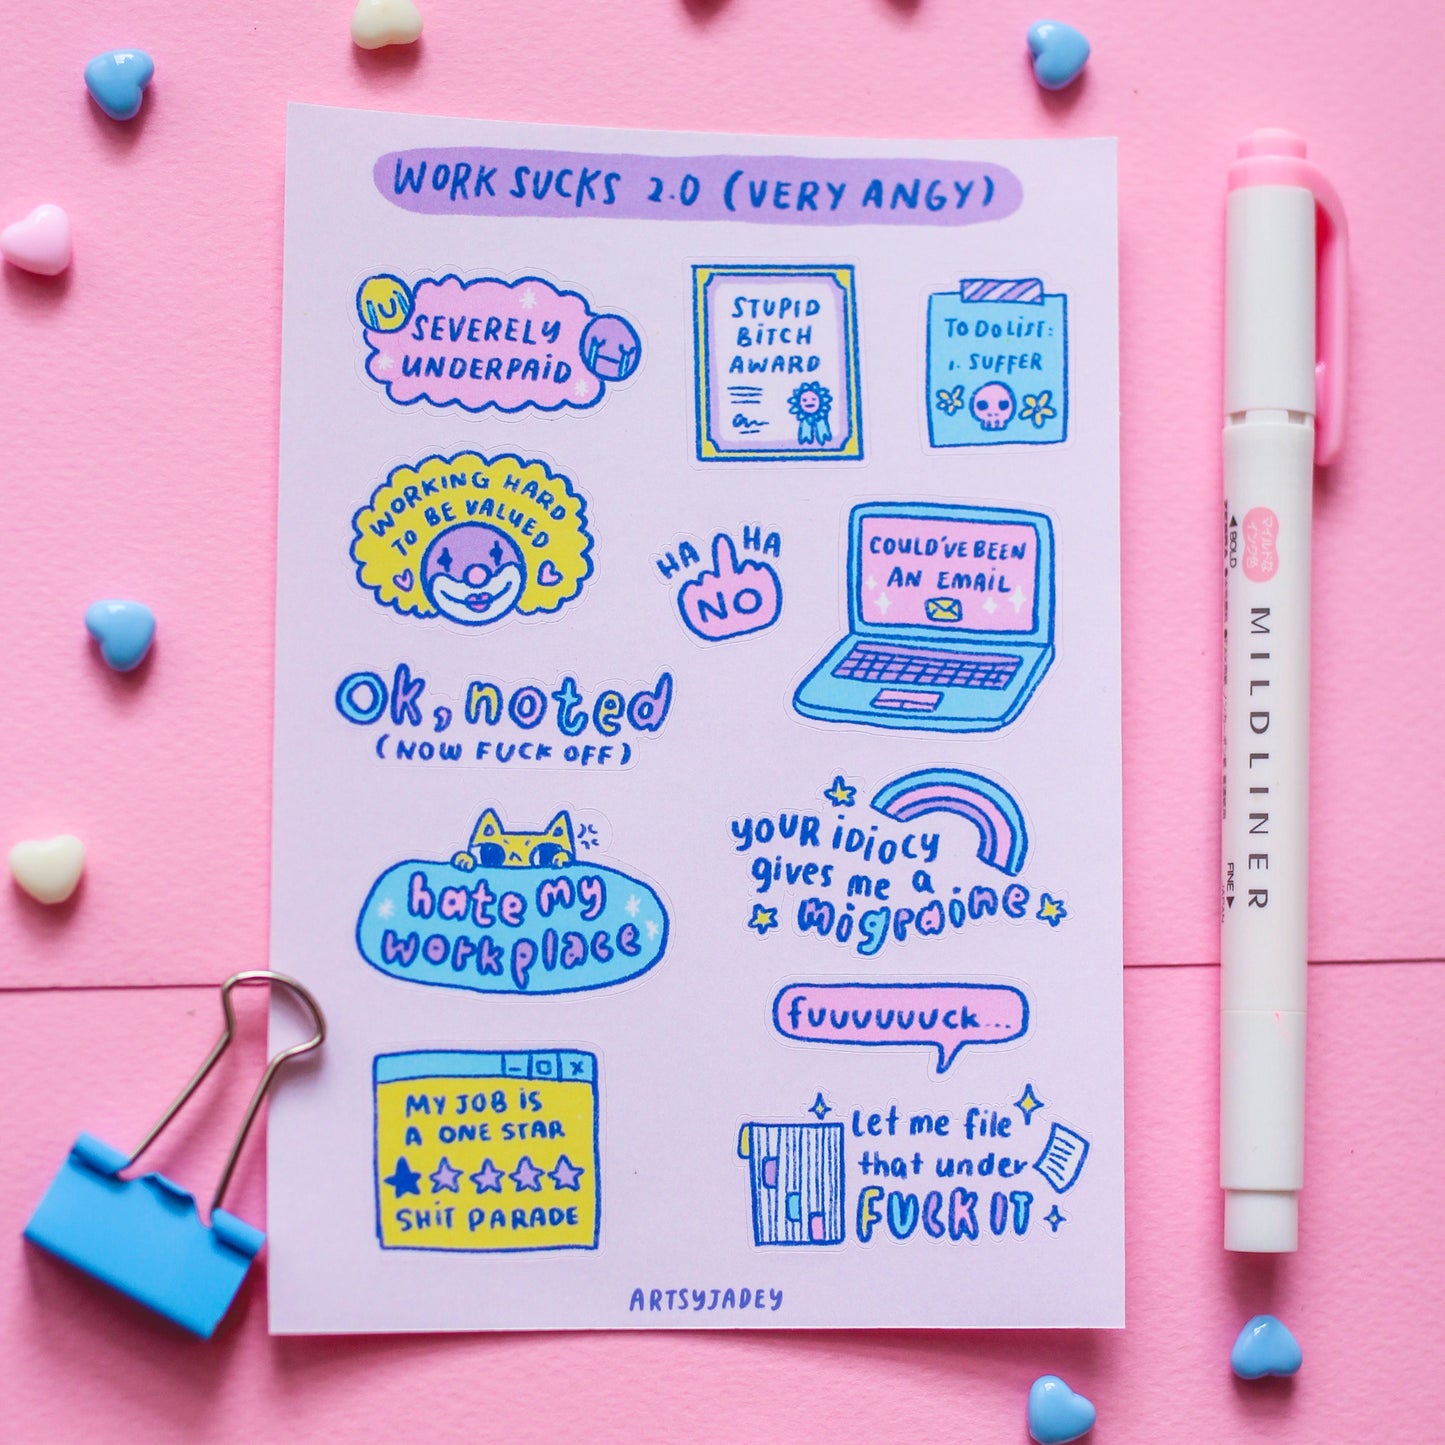 WORK SUCKS 2.0 (VERY ANGY)
SEVERELY
UNDERPAID
STUPID
BITCH
AWARD
TO DO LIST:
1. SUFFER
WORKING HARD
TO BE VALUED
HA HA
NO
COULD'VE BEEN
AN EMAIL
Ok, noted
(NOW FUCK OFF)
YOUR iDiOCY
gives me a
migraine
hate my
workplace
fuuuuuuuck...
MY JOB iS
A ONE STAR
SHiT PARADE
Let me file
that under
FUCK IT
ARTSYJADEY
マイルドな
インク色
◀BOLD
MILDLINER
FINE▶